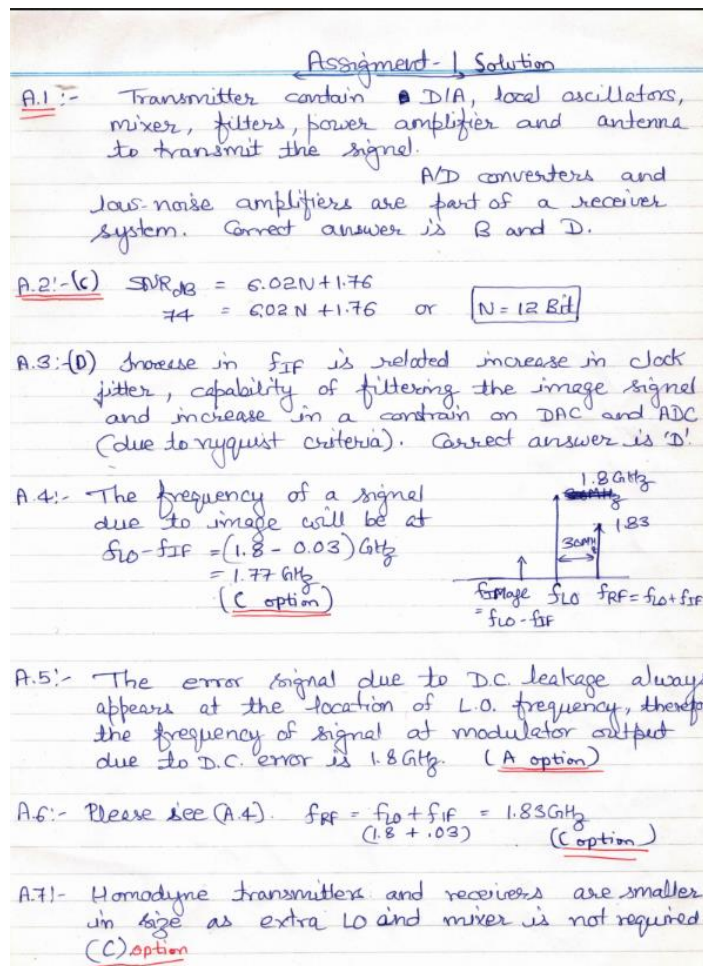 Assigment-1 Solution
A.1:- Transmitter contain D/A, local oscillators,
mixer, filters, power amplifier and antenna
to transmit the signal.
A/D converters and
low-noise amplifiers are part of a receiver
system. Correct answer is B and D.
A.2:-(C) SNRdB = 6.02N+1.76
74 = 6.02N+1.76 or N = 12 Bit
A.3:-(D) Increase in fIF is related increase in clock
jitter, capability of filtering the image signal
and increase in a constrain on DAC and ADC
(due to nyquist criteria). Correct answer is 'D'.
A.4:- The frequency of a signal
due to image will be at
fLO-fIF = (1.8 - 0.03) GHz
= 1.77 GHz
(C option)
1.8 GHz
1.83
30MH
fImage fLO fRF = fLO+fIF
= fLO-fIF
A.5:- The error signal due to D.C. leakage always
appears at the location of L.O. frequency, therefo
the frequency of signal at modulator output
due to D.C. error is 1.8 GHz. (A option)
A.6:- Please see (A.4). fRF = fLO+fIF = 1.83GHz
(1.8 + .03) (C option)
A.7:- Homodyne transmitters and receivers are smaller
in size as extra LO and mixer is not required
(C) option